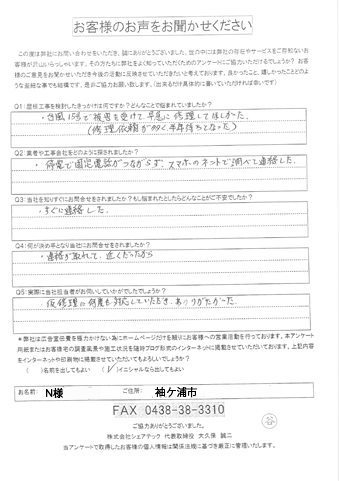 お客様のお声をお聞かせください
この度は弊社にお問い合わせをいただき、誠にありがとうございました。世の中には弊社の存在やサービスをご存知ないお
客様が沢山いらっしゃいます。その方たちに弊社をよく知っていただくためのアンケートにご協力いただけるでしょうか？お
客様のご意見をお聞かせいただき今後の活動に反映させていただきたいと考えております。良かったこと、嬉しかったことどのよ
うな些細な事でも結構です。是非ご協力お願い致します。（出来るだけ具体的に書いていただければ幸いです）
Q1：屋根工事を検討したきっかけは何ですか？どんなことで悩まれていましたか？
・台風15号で被害を受けて早急に修理してほしかった。
（修理依頼が多く、半年待ちとなった）
Q2：業者や工事会社をどのように探されましたか？
・停電で固定電話がつながらず、スマホのネットで調べて連絡した。
Q3：当社を知りすぐにお問合せをされましたか？もし悩まれたとしたらどんなことがご不安でしたか？
・すぐに連絡した。
Q4：何が決め手となり当社にお問合せをされましたか？
・連絡が取れて、近くだったから
Q5：実際に当社担当者がお伺いしていかがでしたでしょうか？
・仮修理に何度も対応していただき、ありがたかった。
＊弊社は広告宣伝費を極力かけない為にホームページだけを頼りにお客様への営業活動を行っております。本アンケート
用紙またはお客様宅の調査風景や施工状況を随時ブログ形式のインターネットに掲載させていただいております。上記内容
をインターネットや印刷物に掲載させていただいてもよろしいでしょうか？
（　）名前を出してもよい　（✓）イニシャルなら出してもよい
お名前： N様　ご住所： 袖ケ浦市
FAX 0438-38-3310
ご協力ありがとうございました。
株式会社シェアテック 代表取締役 大久保 誠二
当アンケートで取得したお客様の個人情報は関係法規に基づき厳正に管理いたします。